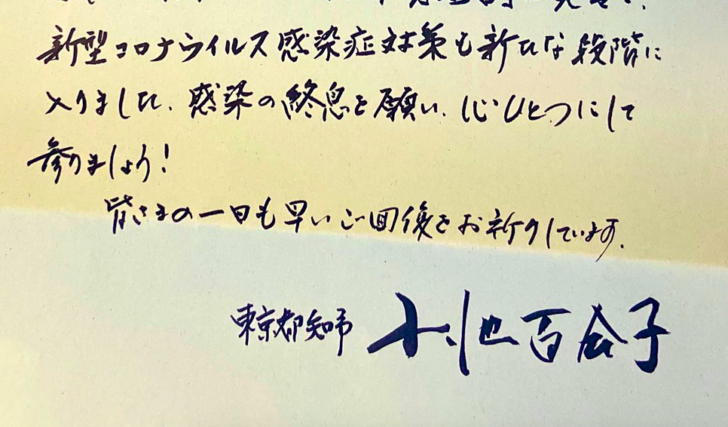 新型コロナウイルス感染症対策も新たな段階に
入りました。感染の終息を願い、心ひとつにして
参りましょう！
皆さまの一日も早いご回復をお祈りしています。
東京都知事 小池百合子